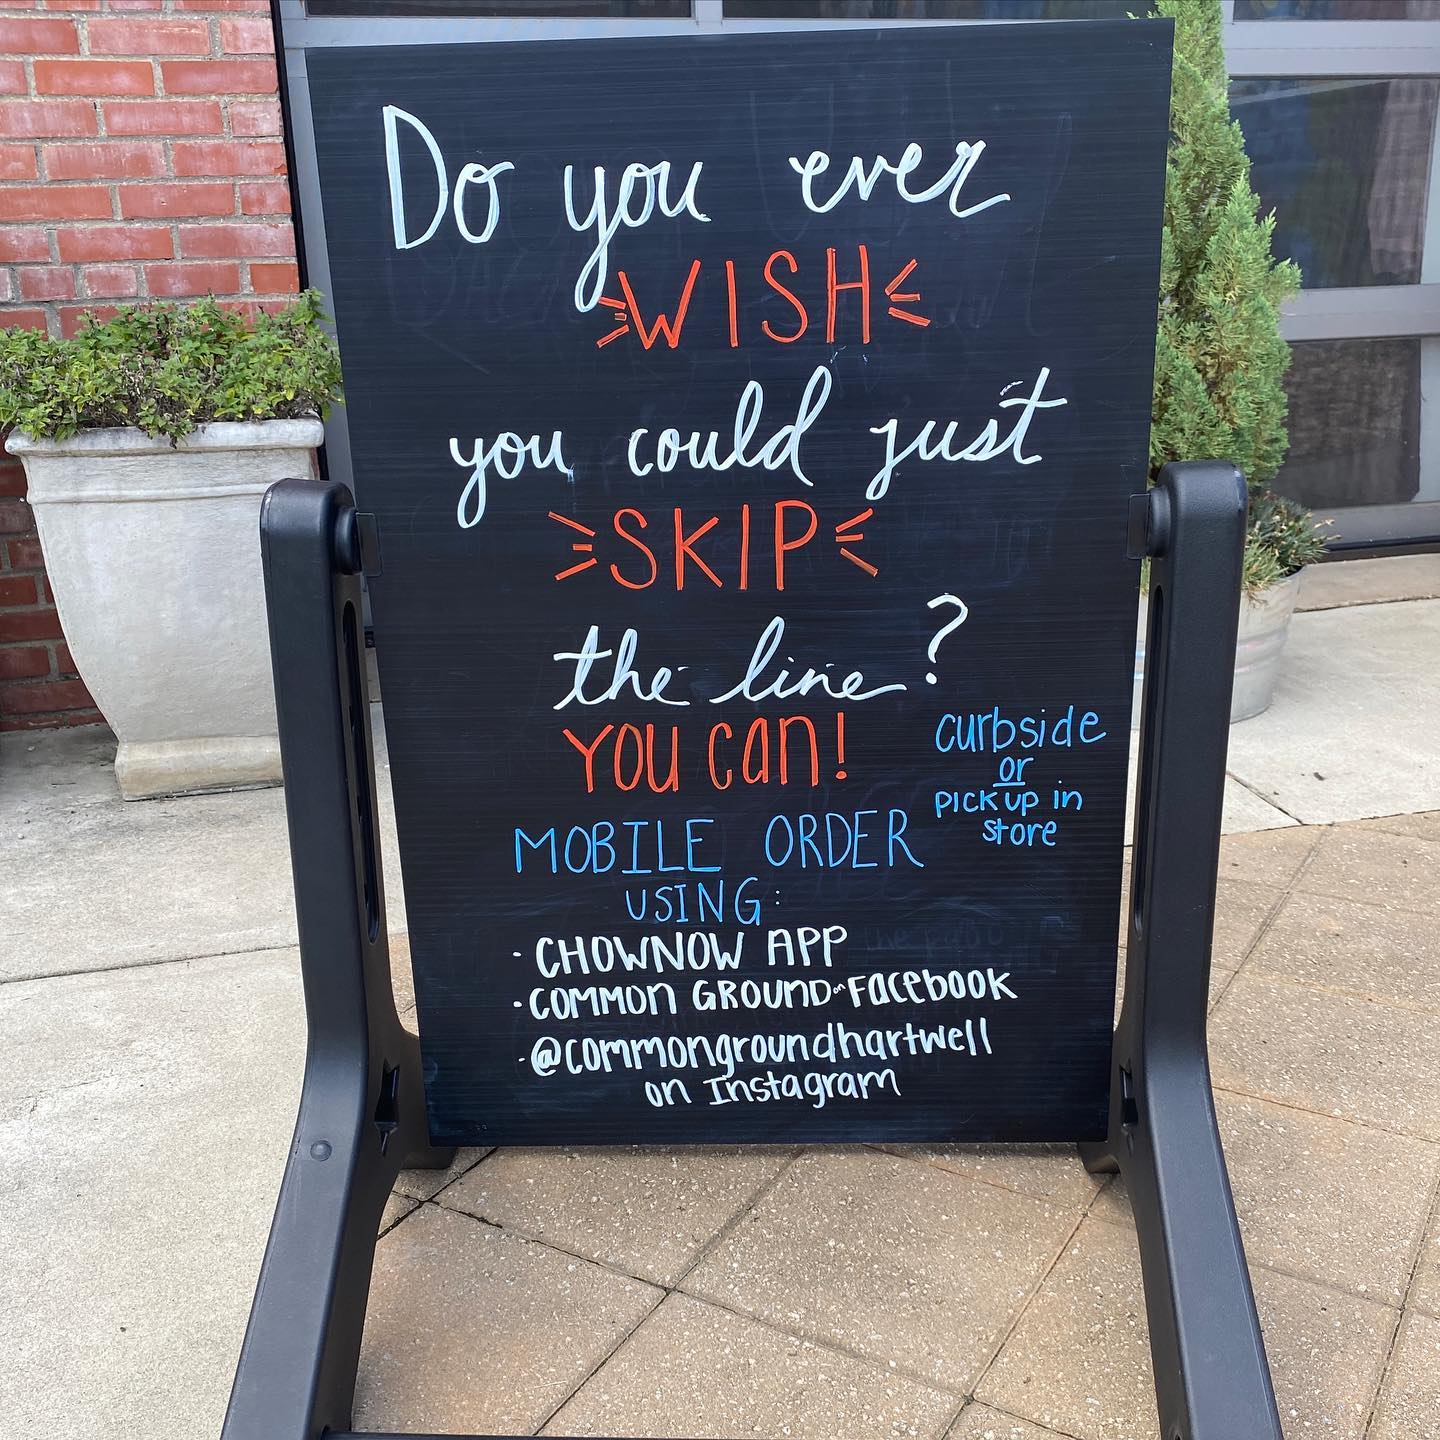 Do you ever
WISH
you could just
SKIP
the line?
YOU can!
curbside
or
pick up in
store
MOBILE ORDER
USING:
· CHOWNOW APP
· COMMON GROUND on Facebook
· @commongroundhartwell
on Instagram